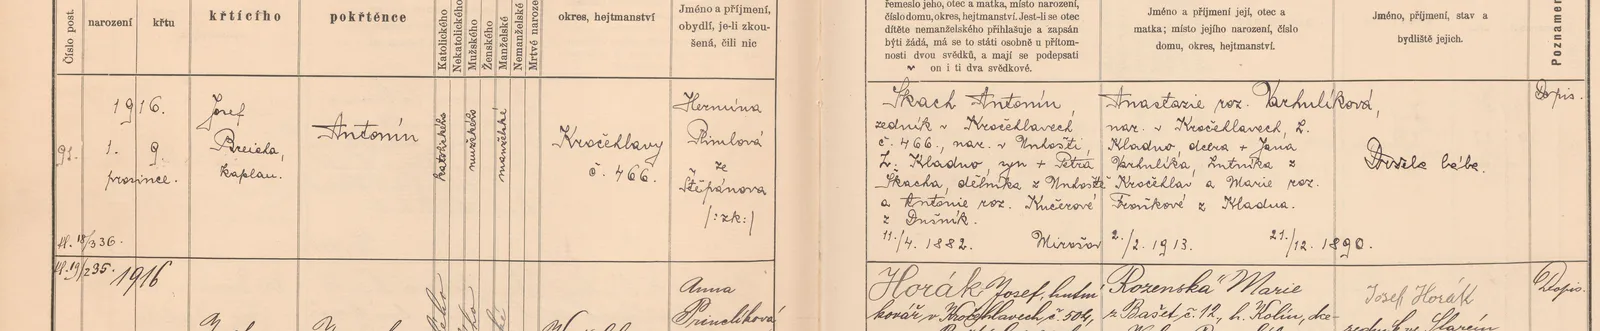 Číslo post.
narození
křtu
křtícího
pokřtěnce
Katolického
Nekatolického
Mužského
Ženského
Manželské
Nemanželské
Mrtvé naroze
okres, hejtmanství
Jméno a příjmení,
obydlí, je-li zkou-
šená, čili nic
řemeslo jeho, otec a matka, místo narození,
číslo domu, okres, hejtmanství. Jest-li se otec
dítěte nemanželského přihlašuje a zapsán
býti žádá, má se to státi osobně u přítom-
nosti dvou svědků, a mají se podepsati
on i ti dva svědkové.
Jméno a příjmení její, otec a
matka; místo jejího narození, číslo
domu, okres, hejtmanství.
Jméno, příjmení, stav a
bydliště jejich.
Poznamen
91.
1916.
1. 9.
prosince.
fl. 18/336.
Josef
Breicha,
kaplan.
Antonín
katolického
mužského
manželské
Kročehlavy
č. 466.
Hermína
Štěpánova
/: zk :/
Škach Antonín,
zedník v Kročehlavech
č. 466., nar. v Unhošti,
z. Kladno, syn + Petra
Škacha, dělníka z Unhoště
a Antonie roz. Kučerové
z Dušník.
11./4. 1882.
Anastazie roz. Varhulíková,
nar. v Kročehlavech, z.
Kladno, dcera + Jana
Varhulíka, z
Kročehlav a Marie roz.
z Kladna.
2./2. 1913.
21./12. 1890.
bába.
Dopis.
fl. 19/235.
1916
Anna
Horák Josef, hutní
kovář, v Kročehlavech č. 504,
Rozenská Marie
z Bašet, č. 12, h. Kolín,
Josef Horák
Dopis.